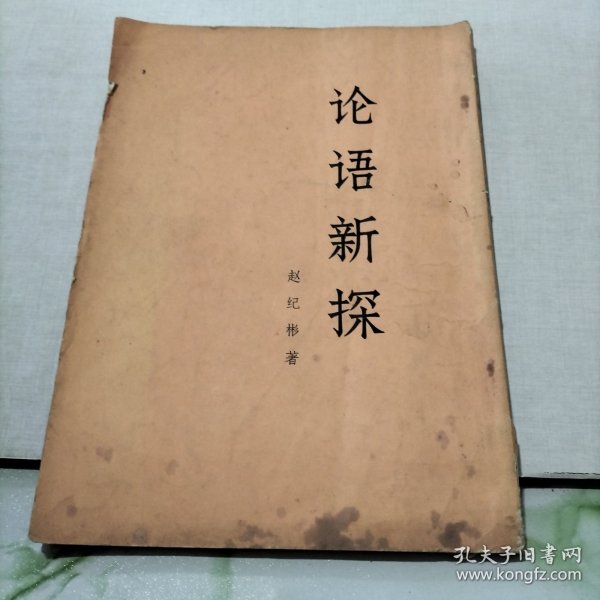 论语新探
赵纪彬著
孔夫子旧书网
www.kongfz.com